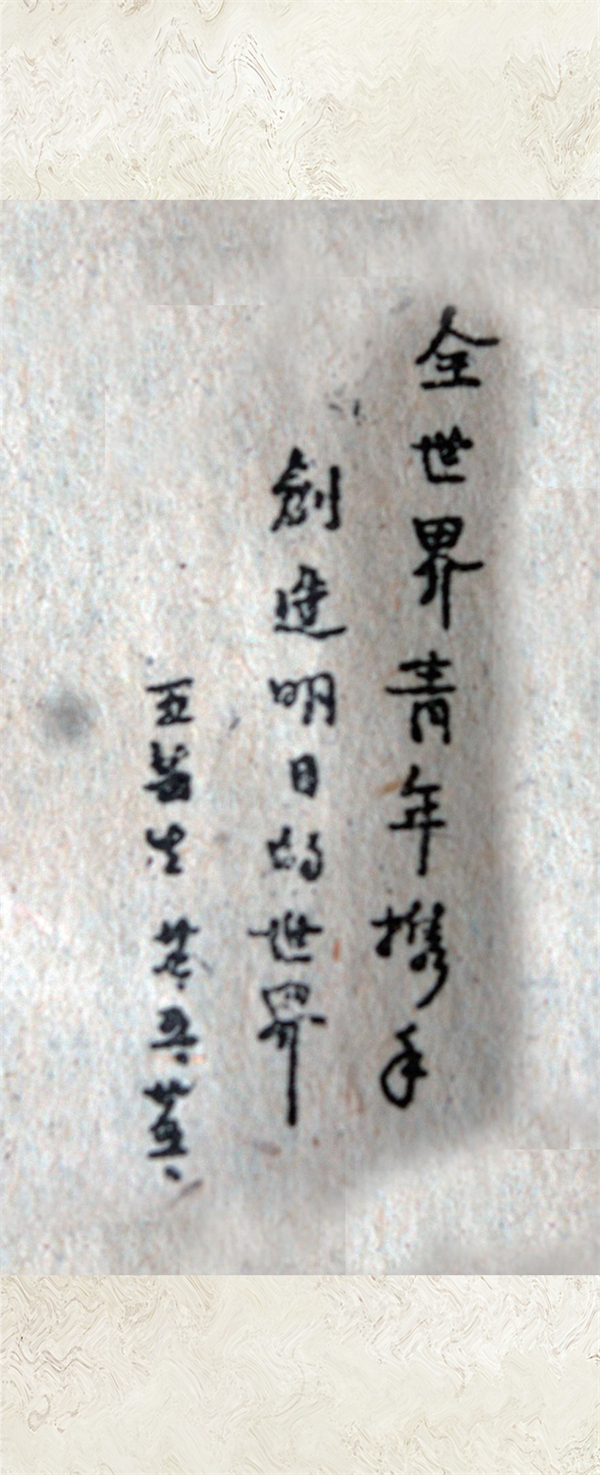 全世界青年携手
創造明日的世界
五
生 廿五